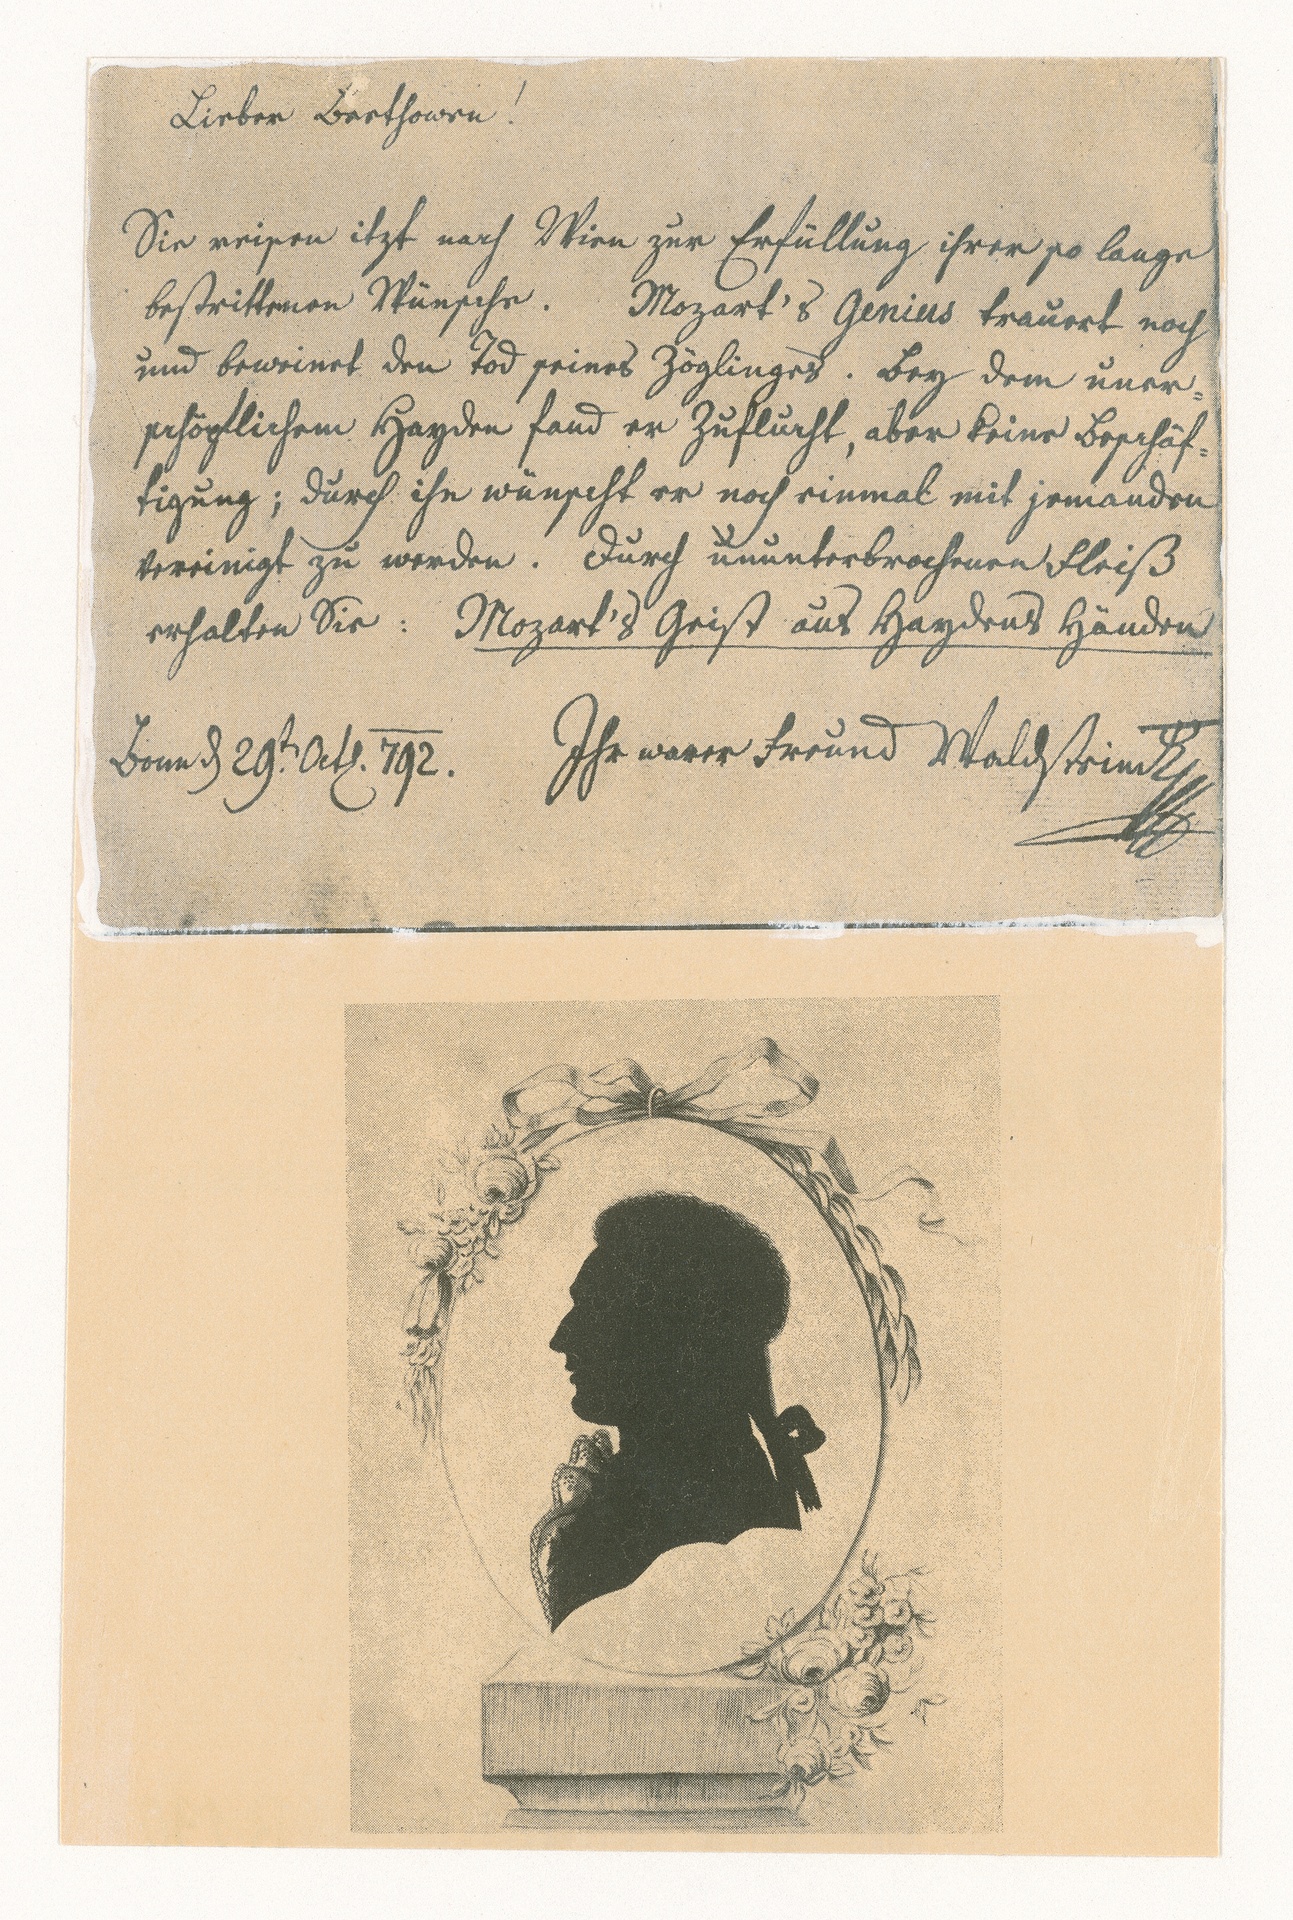 Lieber Beethowen!
Sie reisen itzt nach Wien zur Erfüllung ihrer so lange
bestrittenen Wünsche. Mozart's Genius trauert noch
und beweinet den Tod seines Zöglinges. Bey dem uner-
schöpflichem Hayden fand er Zuflucht, aber keine Beschäf-
tigung; durch ihn wünscht er noch einmal mit jemanden
vereinigt zu werden. Durch ununterbrochenen Fleiß
erhalten Sie: Mozart's Geist aus Haydens Händen
Bonn d 29t Octb. 792. Ihr warer Freund Waldstein